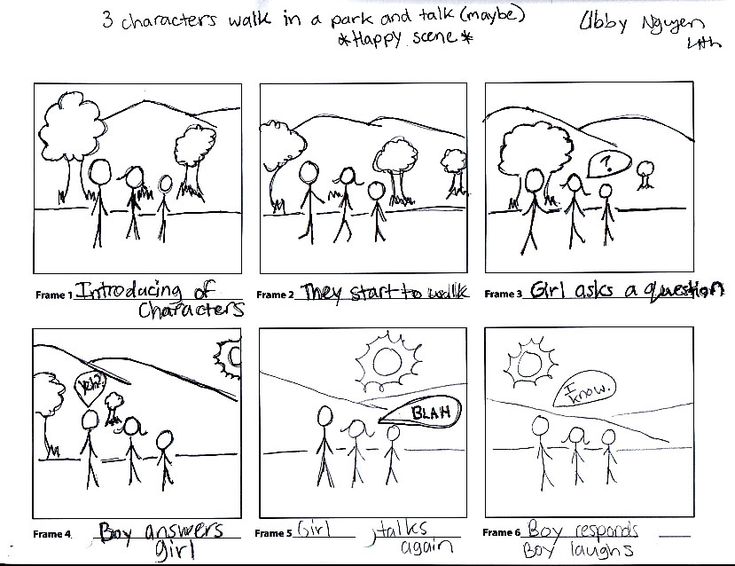 3 characters walk in a park and talk (maybe)
*Happy scene*
Abby Nguyen
?
Frame 1 Introducing of
Characters
Frame 2 They start to walk
Frame 3 Girl asks a question
Yeh?
BLAH
I
know.
Frame 4 Boy answers
girl
Frame 5 Girl talks
again
Frame 6 Boy responds
Boy laughs